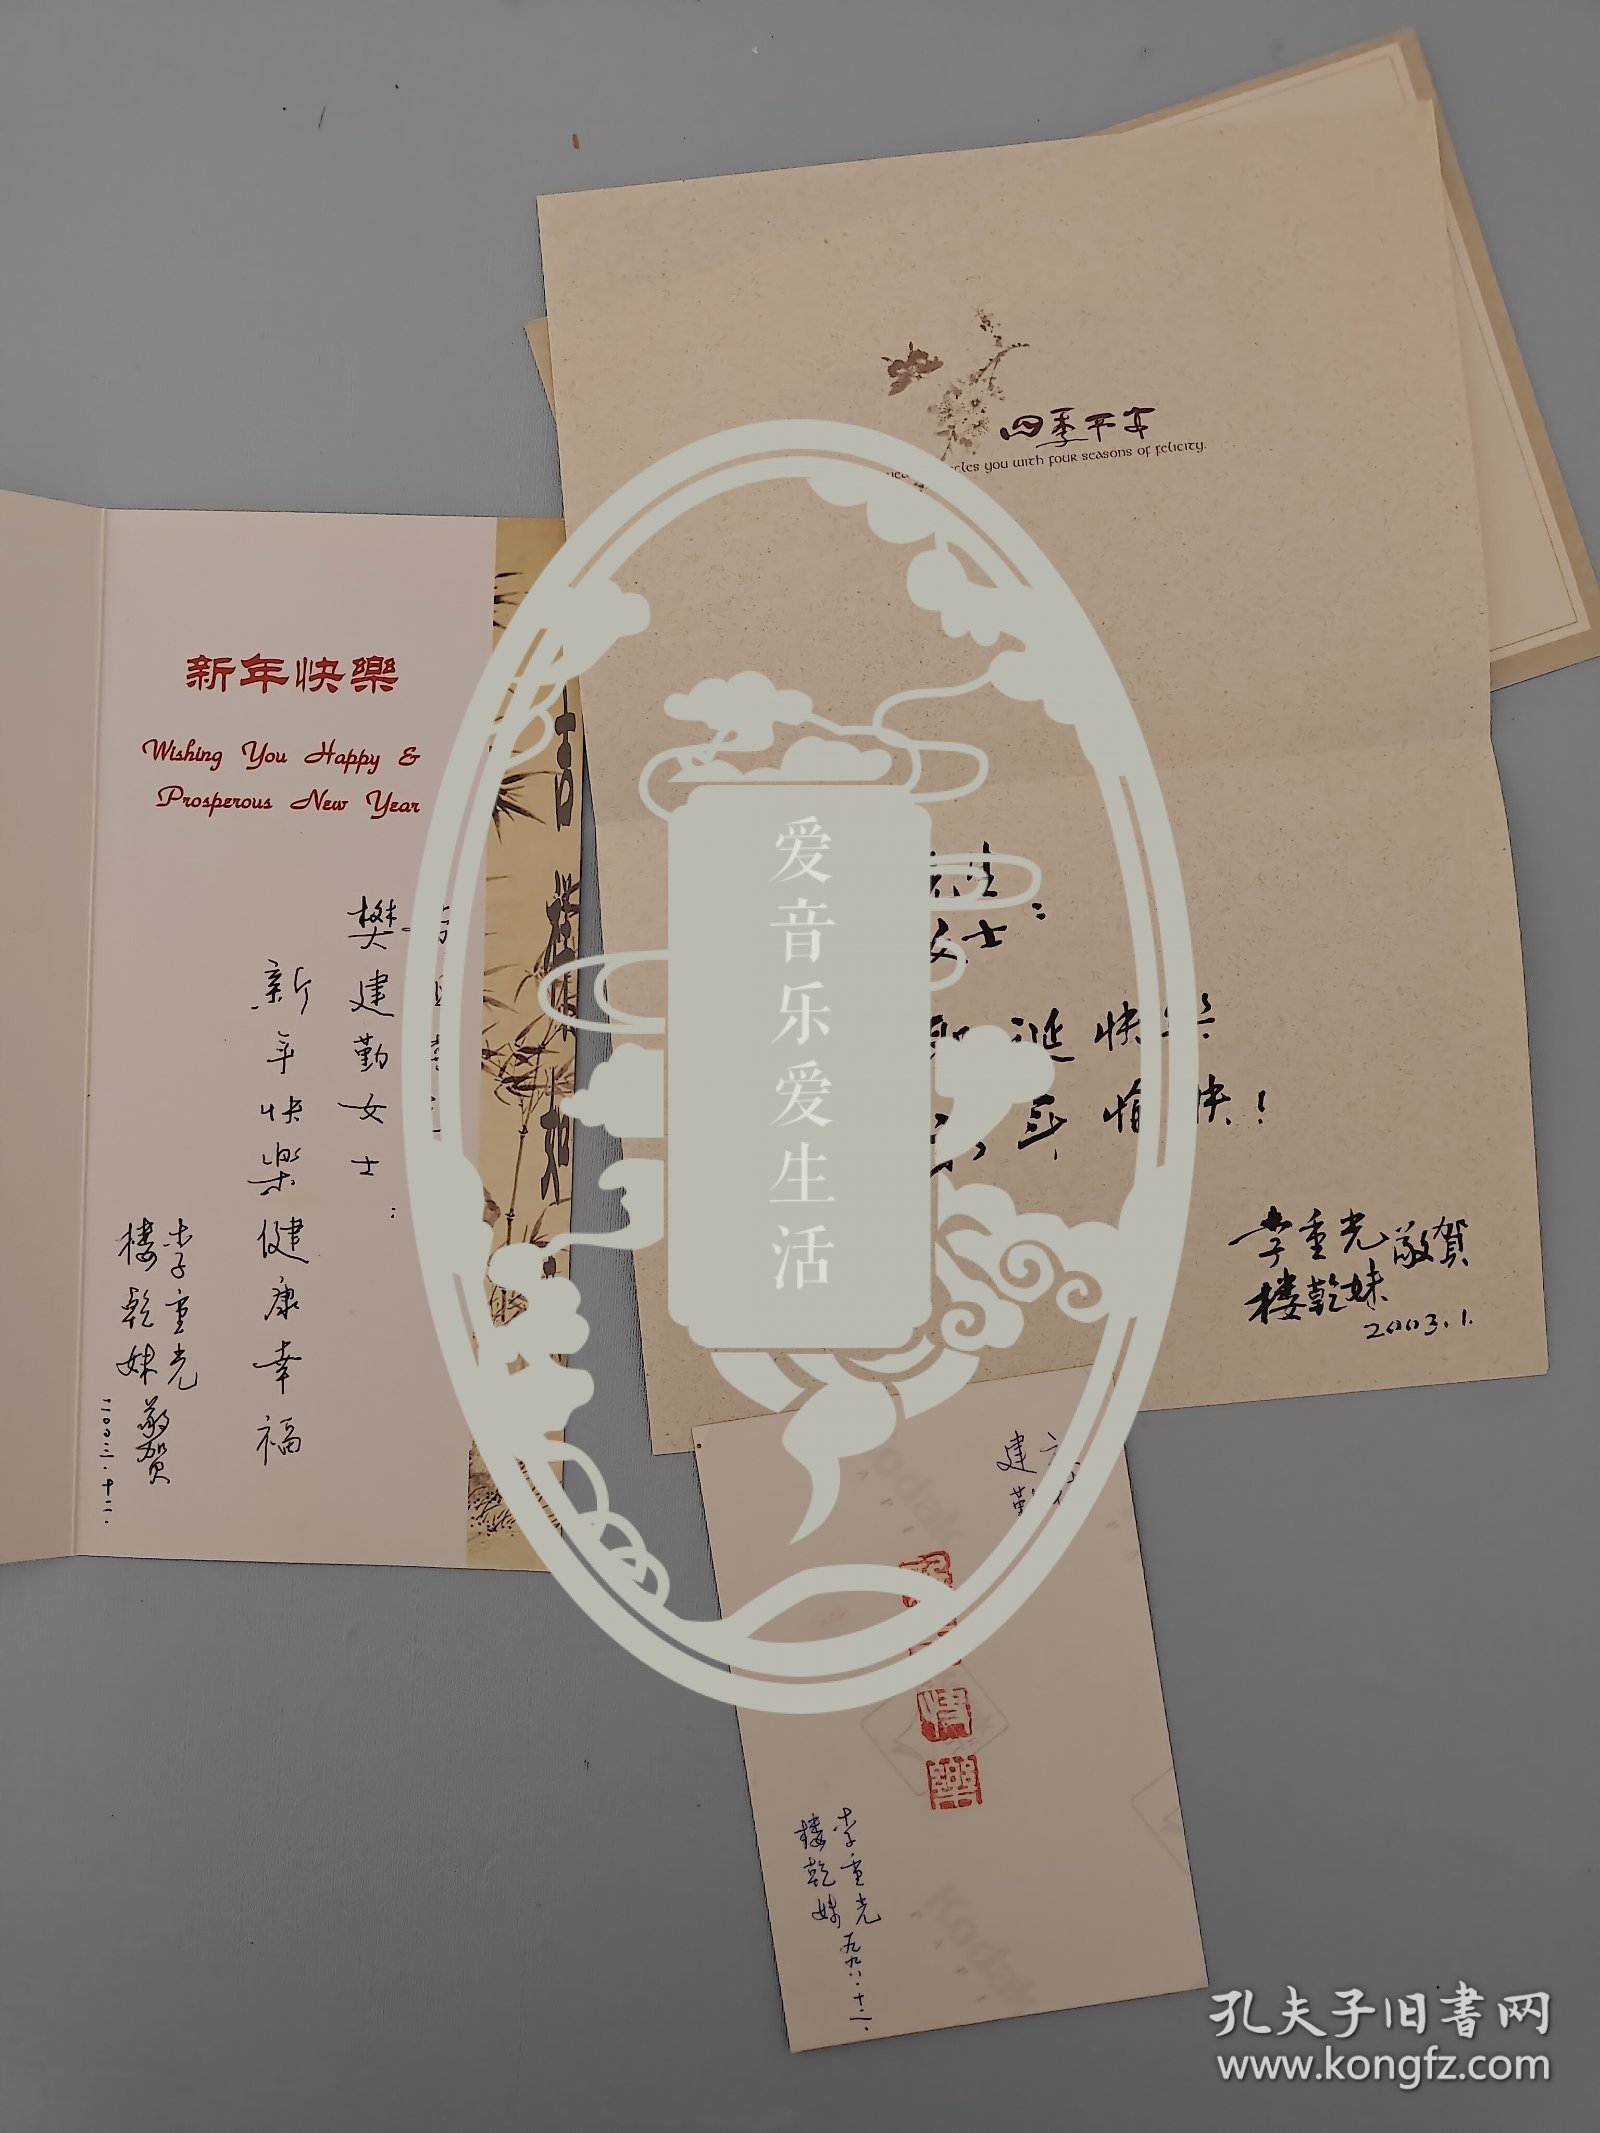 新年快樂
Wishing You Happy &
Prosperous New Year
樊建勤女士：
新年快樂健康幸福
李重光
楼乾妹
敬賀
二〇〇三.十二.
吉祥如
四季平安
you with four seasons of felicity.
生
女士：
诞快樂
年愉快！
李重光敬賀
楼乾妹
2003.1.
爱音乐爱生活
建勤
情
樂
李重光
楼乾妹
九九八.十二.
Kodak
Kodak
孔夫子旧书网
www.kongfz.com